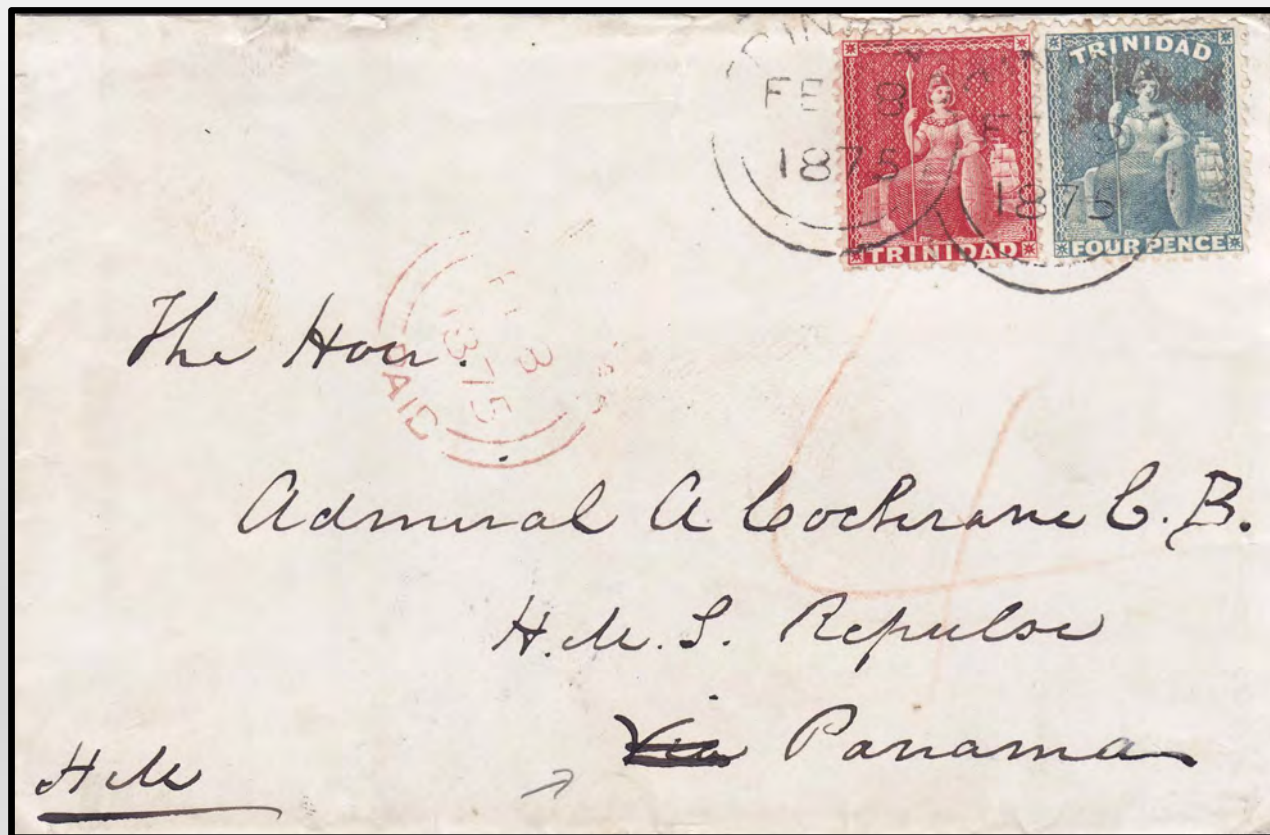 FE 8
1875
TRINIDAD
TRINIDAD
FOUR PENCE
1875
1875
PAID
4
The Hon.
Admiral A Cochrane C.B.
H.M.S. Repulse
Via Panama
H M